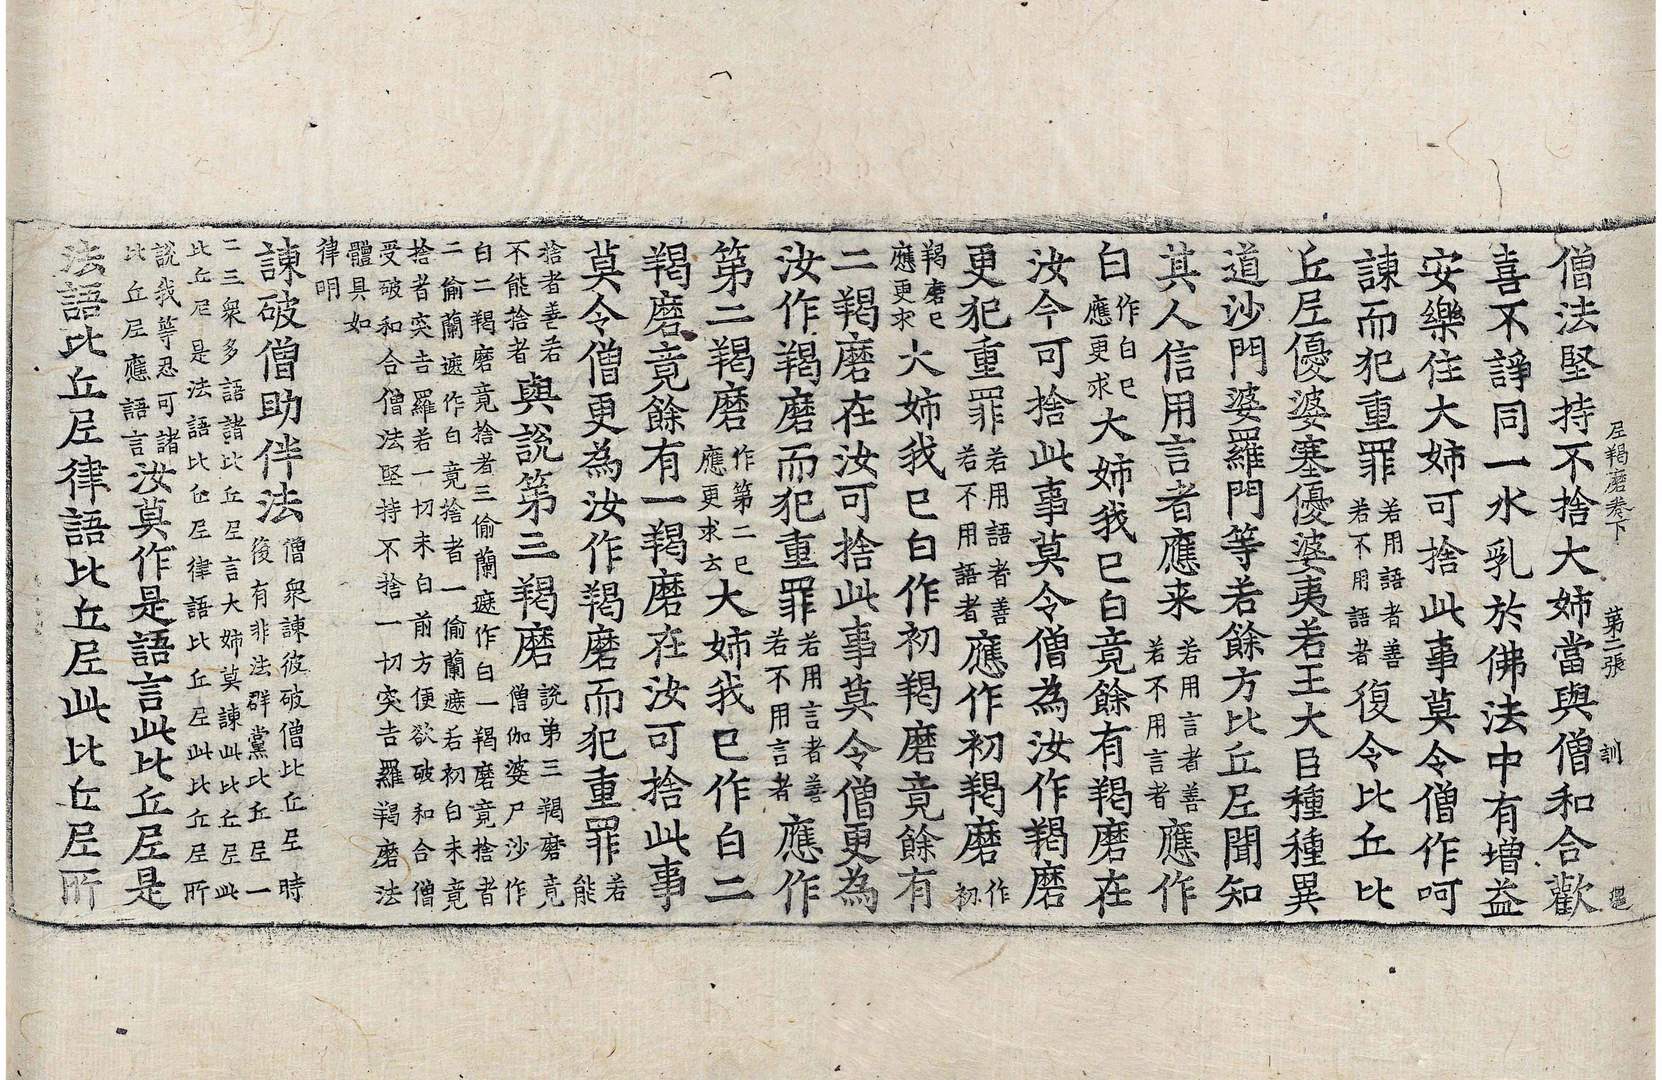 尼羯磨卷下 第二張 訓
僧法堅持不捨大姉當與僧和合歡
喜不諍同一水乳於佛法中有增益
安樂住大姉可捨此事莫令僧作呵
諫而犯重罪若用語者善若不用語者復令比丘比
丘尼優婆塞優婆夷若王大臣種種異
道沙門婆羅門等若餘方比丘尼聞知
其人信用言者應来若用言者善若不用言者應作
白作白已應更求大姉我已白竟餘有羯磨在
汝今可捨此事莫令僧為汝作羯磨
更犯重罪若用語者善若不用語者應作初羯磨作初
羯磨已應更求大姉我已白作初羯磨竟餘有
二羯磨在汝可捨此事莫令僧更為
汝作羯磨而犯重罪若用言者善若不用言者應作
第二羯磨作第二已應更求去大姉我已作白二
羯磨竟餘有一羯磨在汝可捨此事
莫令僧更為汝作羯磨而犯重罪若能
捨者善若不能捨者與說第三羯磨說弟三羯磨竟僧伽婆尸沙作
白二羯磨竟捨者三偷蘭遮作白一羯磨竟捨者
二偷蘭遮作白竟捨者一偷蘭遮若初白未竟
捨者突吉羅若一切未白前方便欲破和合僧
受破和合僧法堅持不捨一切突吉羅羯磨法
體具如
律明
諫破僧助伴法僧衆諫彼破僧比丘尼時後有非法群黨比丘尼一
二三衆多語諸比丘尼言大姉莫諫此比丘尼此
比丘尼是法語比丘尼律語比丘尼此比丘尼所
說我等忍可諸比丘尼應語言汝莫作是語言此比丘尼是
法語比丘尼律語比丘尼此比丘尼所